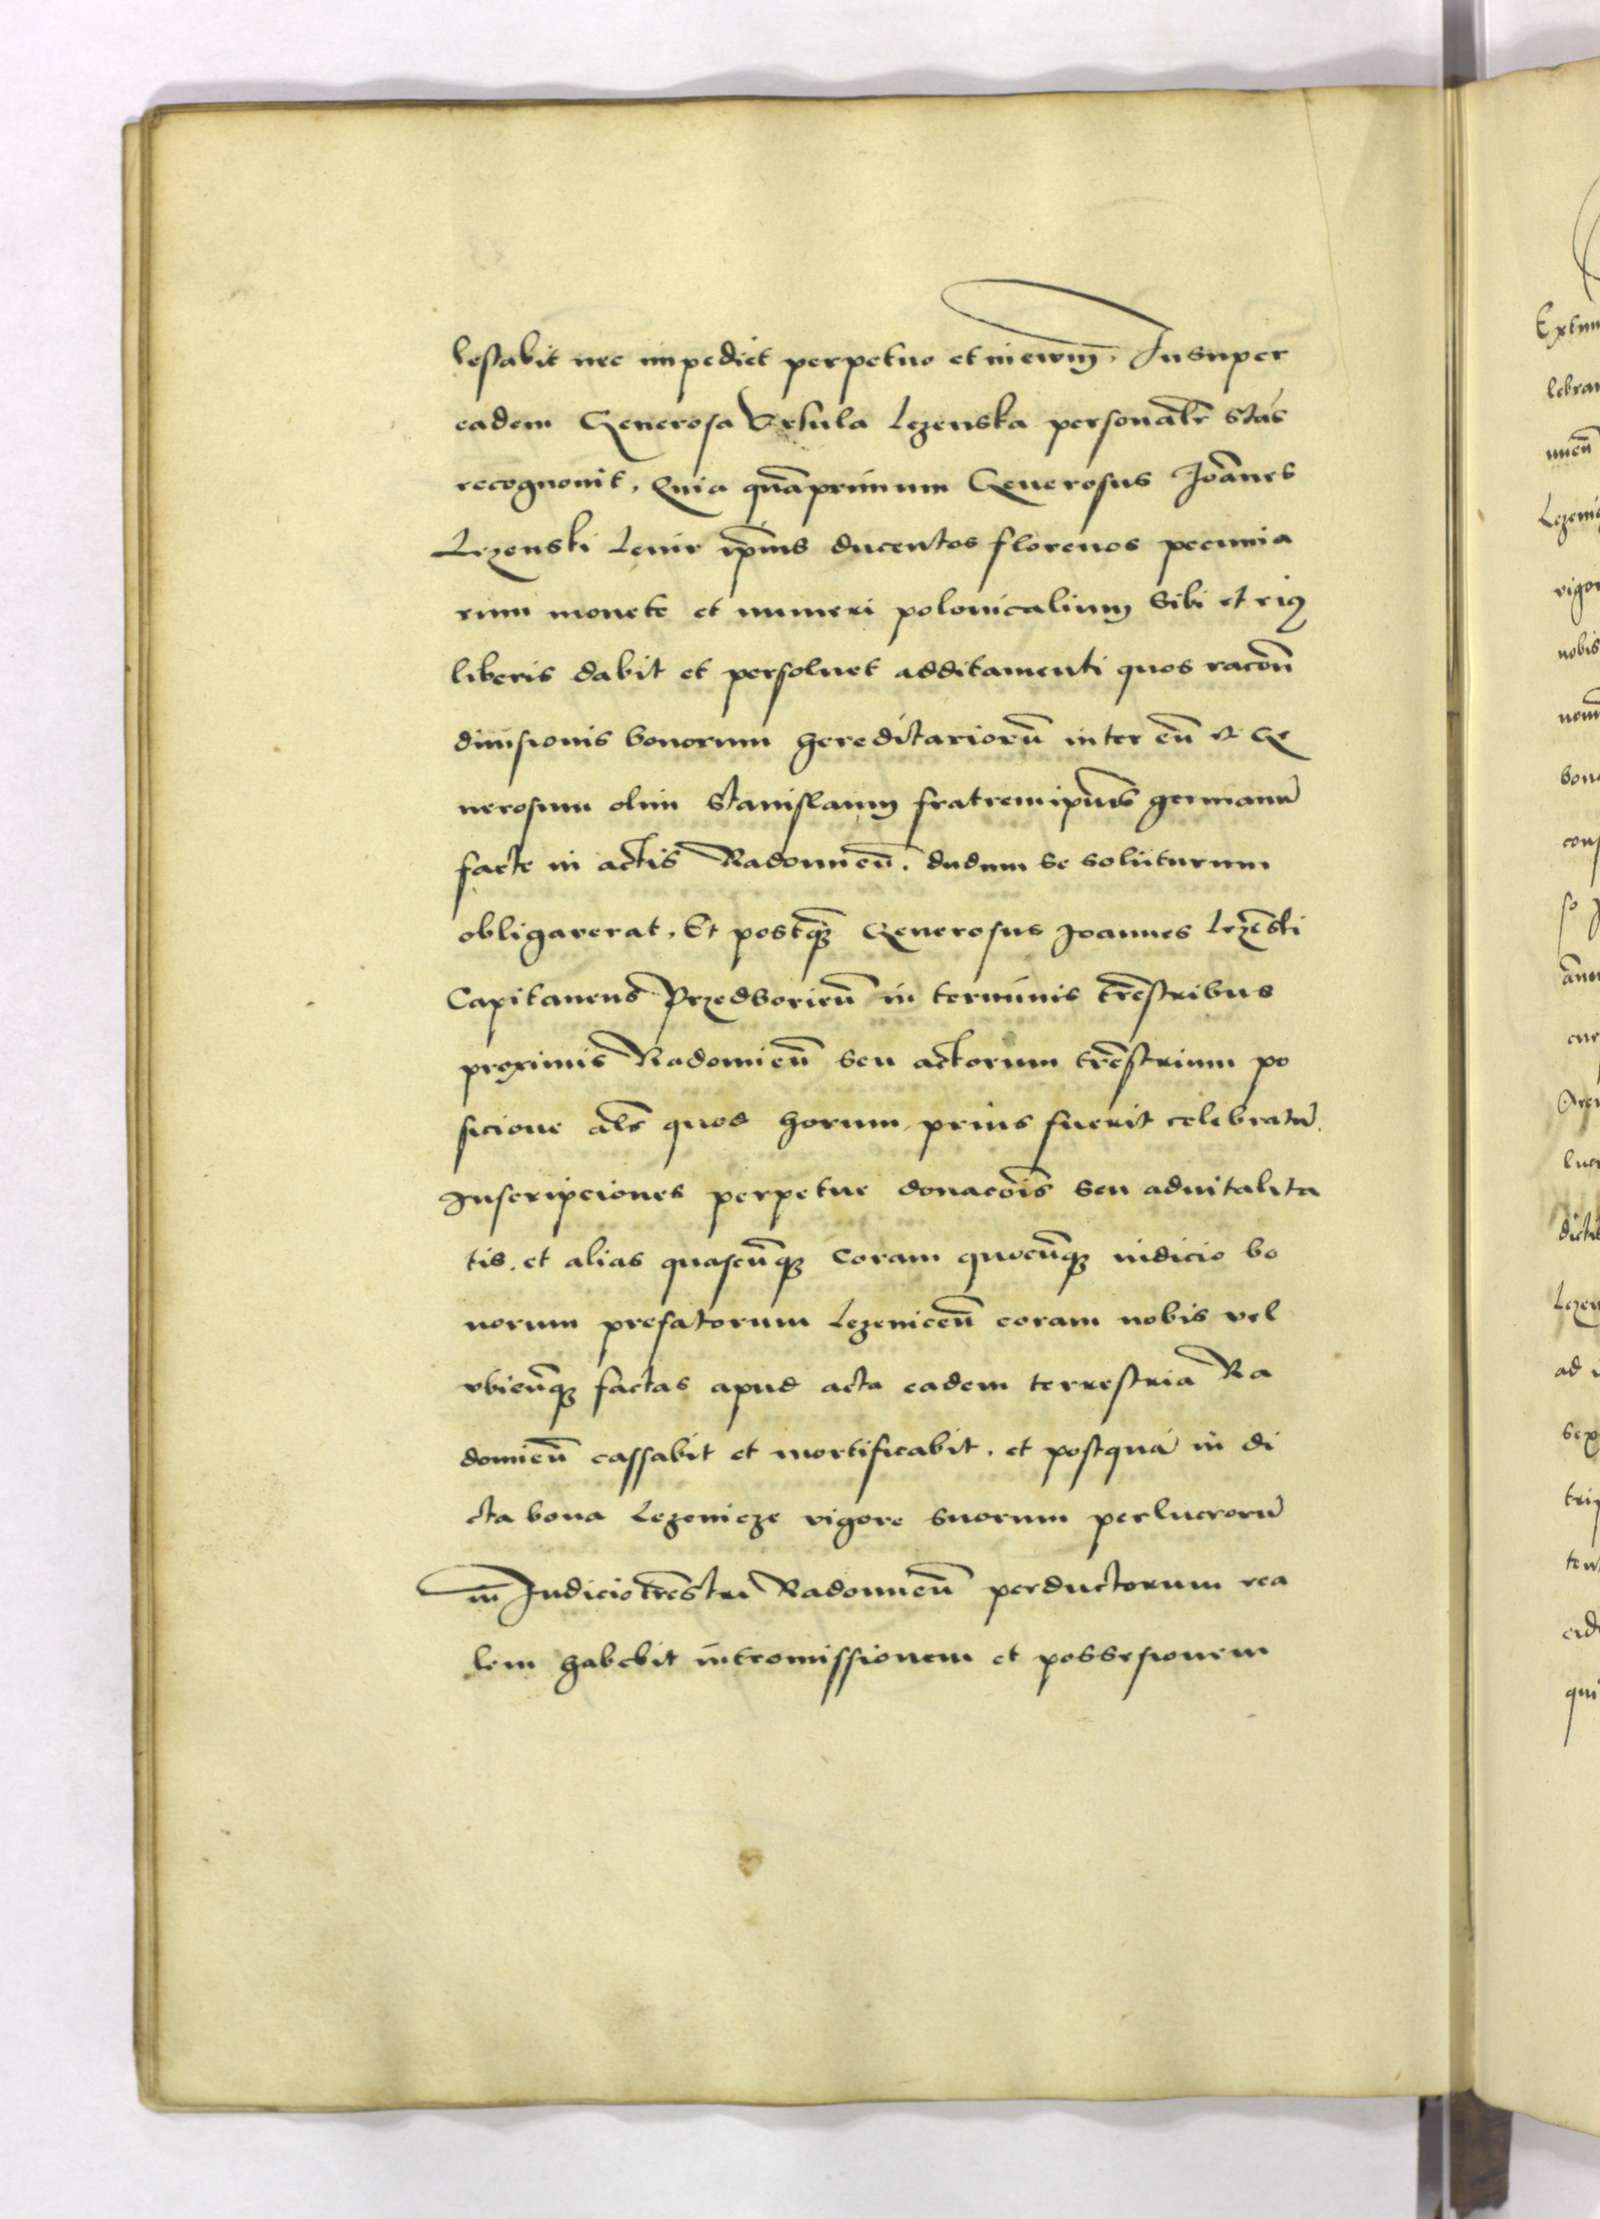 lestabit nec impedict perpetuo et in ewm̃, Insuper
eadem Generosa Vrsula Lezenska personalr̃ stãs
recognouit, Quia quãprimum Generosus Joãnes
Lezenski Leuir ip̃ius ducentos florenos pecunia
rum monete et numeri polonicalium sibi et eius
liberis dabit et persoluet additamenti quos racoñ
diuisionis bonorum hereditariorũ inter eũ et Ge
nerosum olim Stanislaum fratrem ip̃ius germanũ
facte in actis Radomieñ. dudum se soluturum
obligaverat, Et postq̃ Generosus Joannes Lezẽski
Capitaneus Przedborieñ in terminis tr̃estribus
proximis Radomieñ seu actorum tr̃estrium po
sicione als̃ quod horum prius fuerit celebratũ.
Inscripciones perpetue donacõis seu aduitalita
tis. et alias quascũq3 coram quocũq3 iudicio bo
norum prefatorum Lezeniceñ coram nobis vel
vbicũq3 factas apud acta eadem terrestria Ra
domieñ cassabit et mortificabit. et postquã in di
cta bona Lezenicze vigore suorum perlucrorũ
in Judicio tr̃estri Radomieñ perductorum rea
lem habebit intromissionem et possesionem